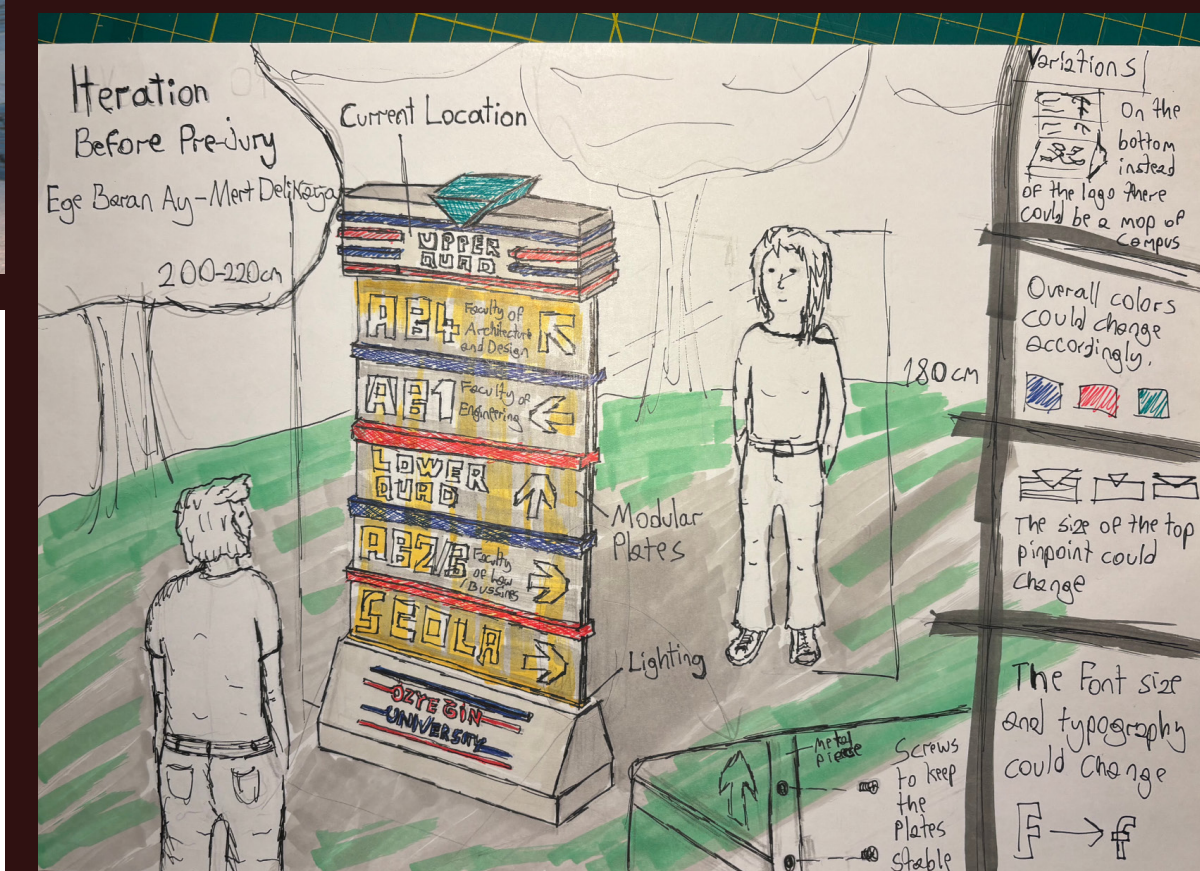 Iteration
Before Pre-Jury
Ege Baran Ay-Mert Delikaya
200-220cm
Current Location
UPPER
QUAD
AB4
Faculty of
Architecture
and Design
AB1
Faculty of
Engineering
LOWER
QUAD
AB2/3
Faculty
of Law
/Bussines
SCOLA
ÖZYEGIN
UNIVERSITY
Modular
Plates
Lighting
180cm
metal
piease
Screws
to keep
the
plates
stable
Variations
On the
bottom
instead
of the logo there
could be a map of
campus
Overall colors
could change
accordingly.
The size of the top
pinpoint could
change
The Font size
and typography
could change
F → f